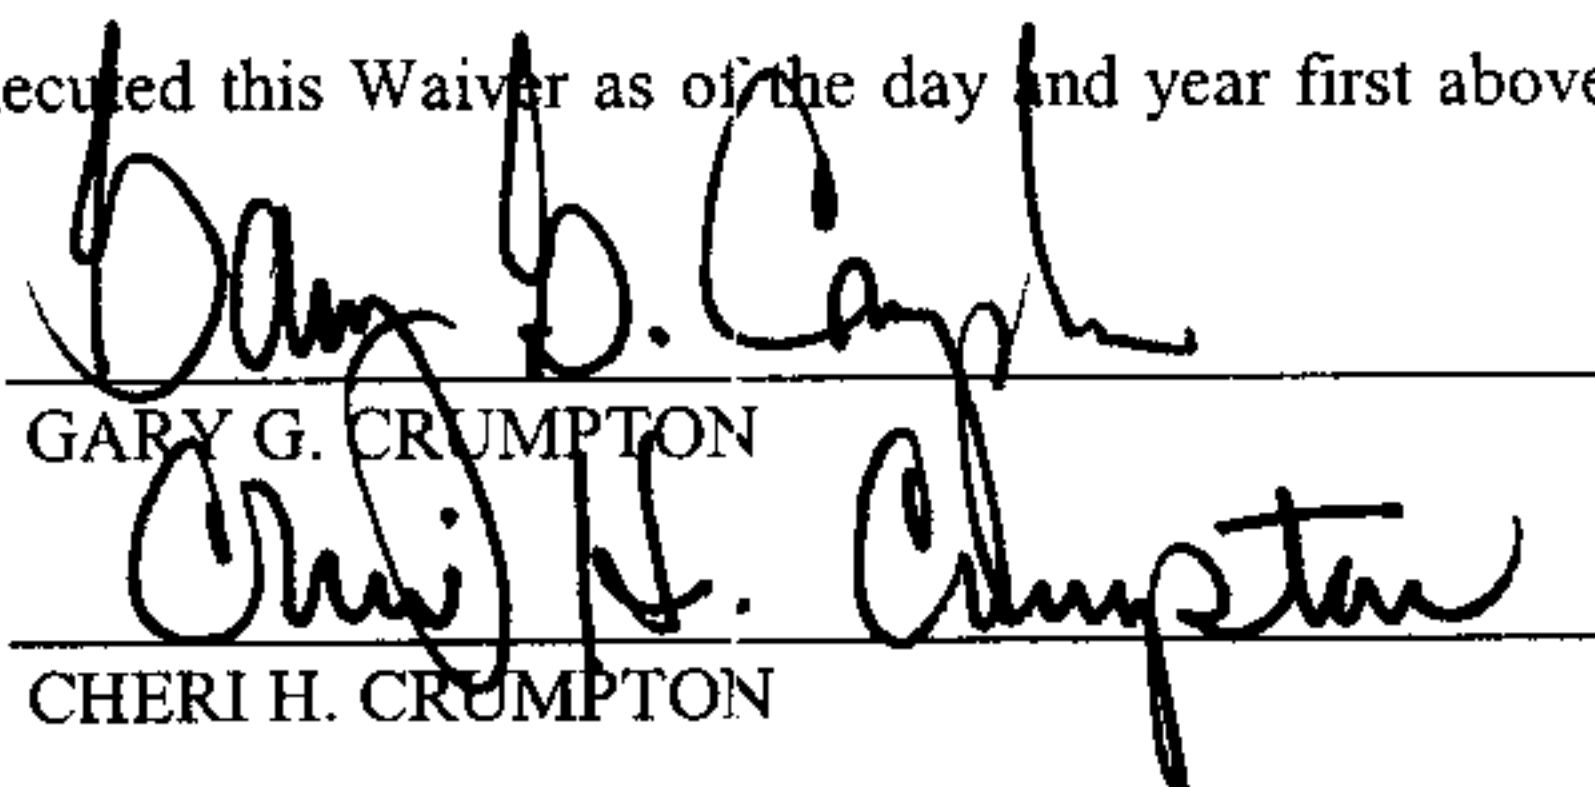 ecuted this Waiver as of the day and year first above
Gary G. Crumpton
GARY G. CRUMPTON
Cheri H. Crumpton
CHERI H. CRUMPTON